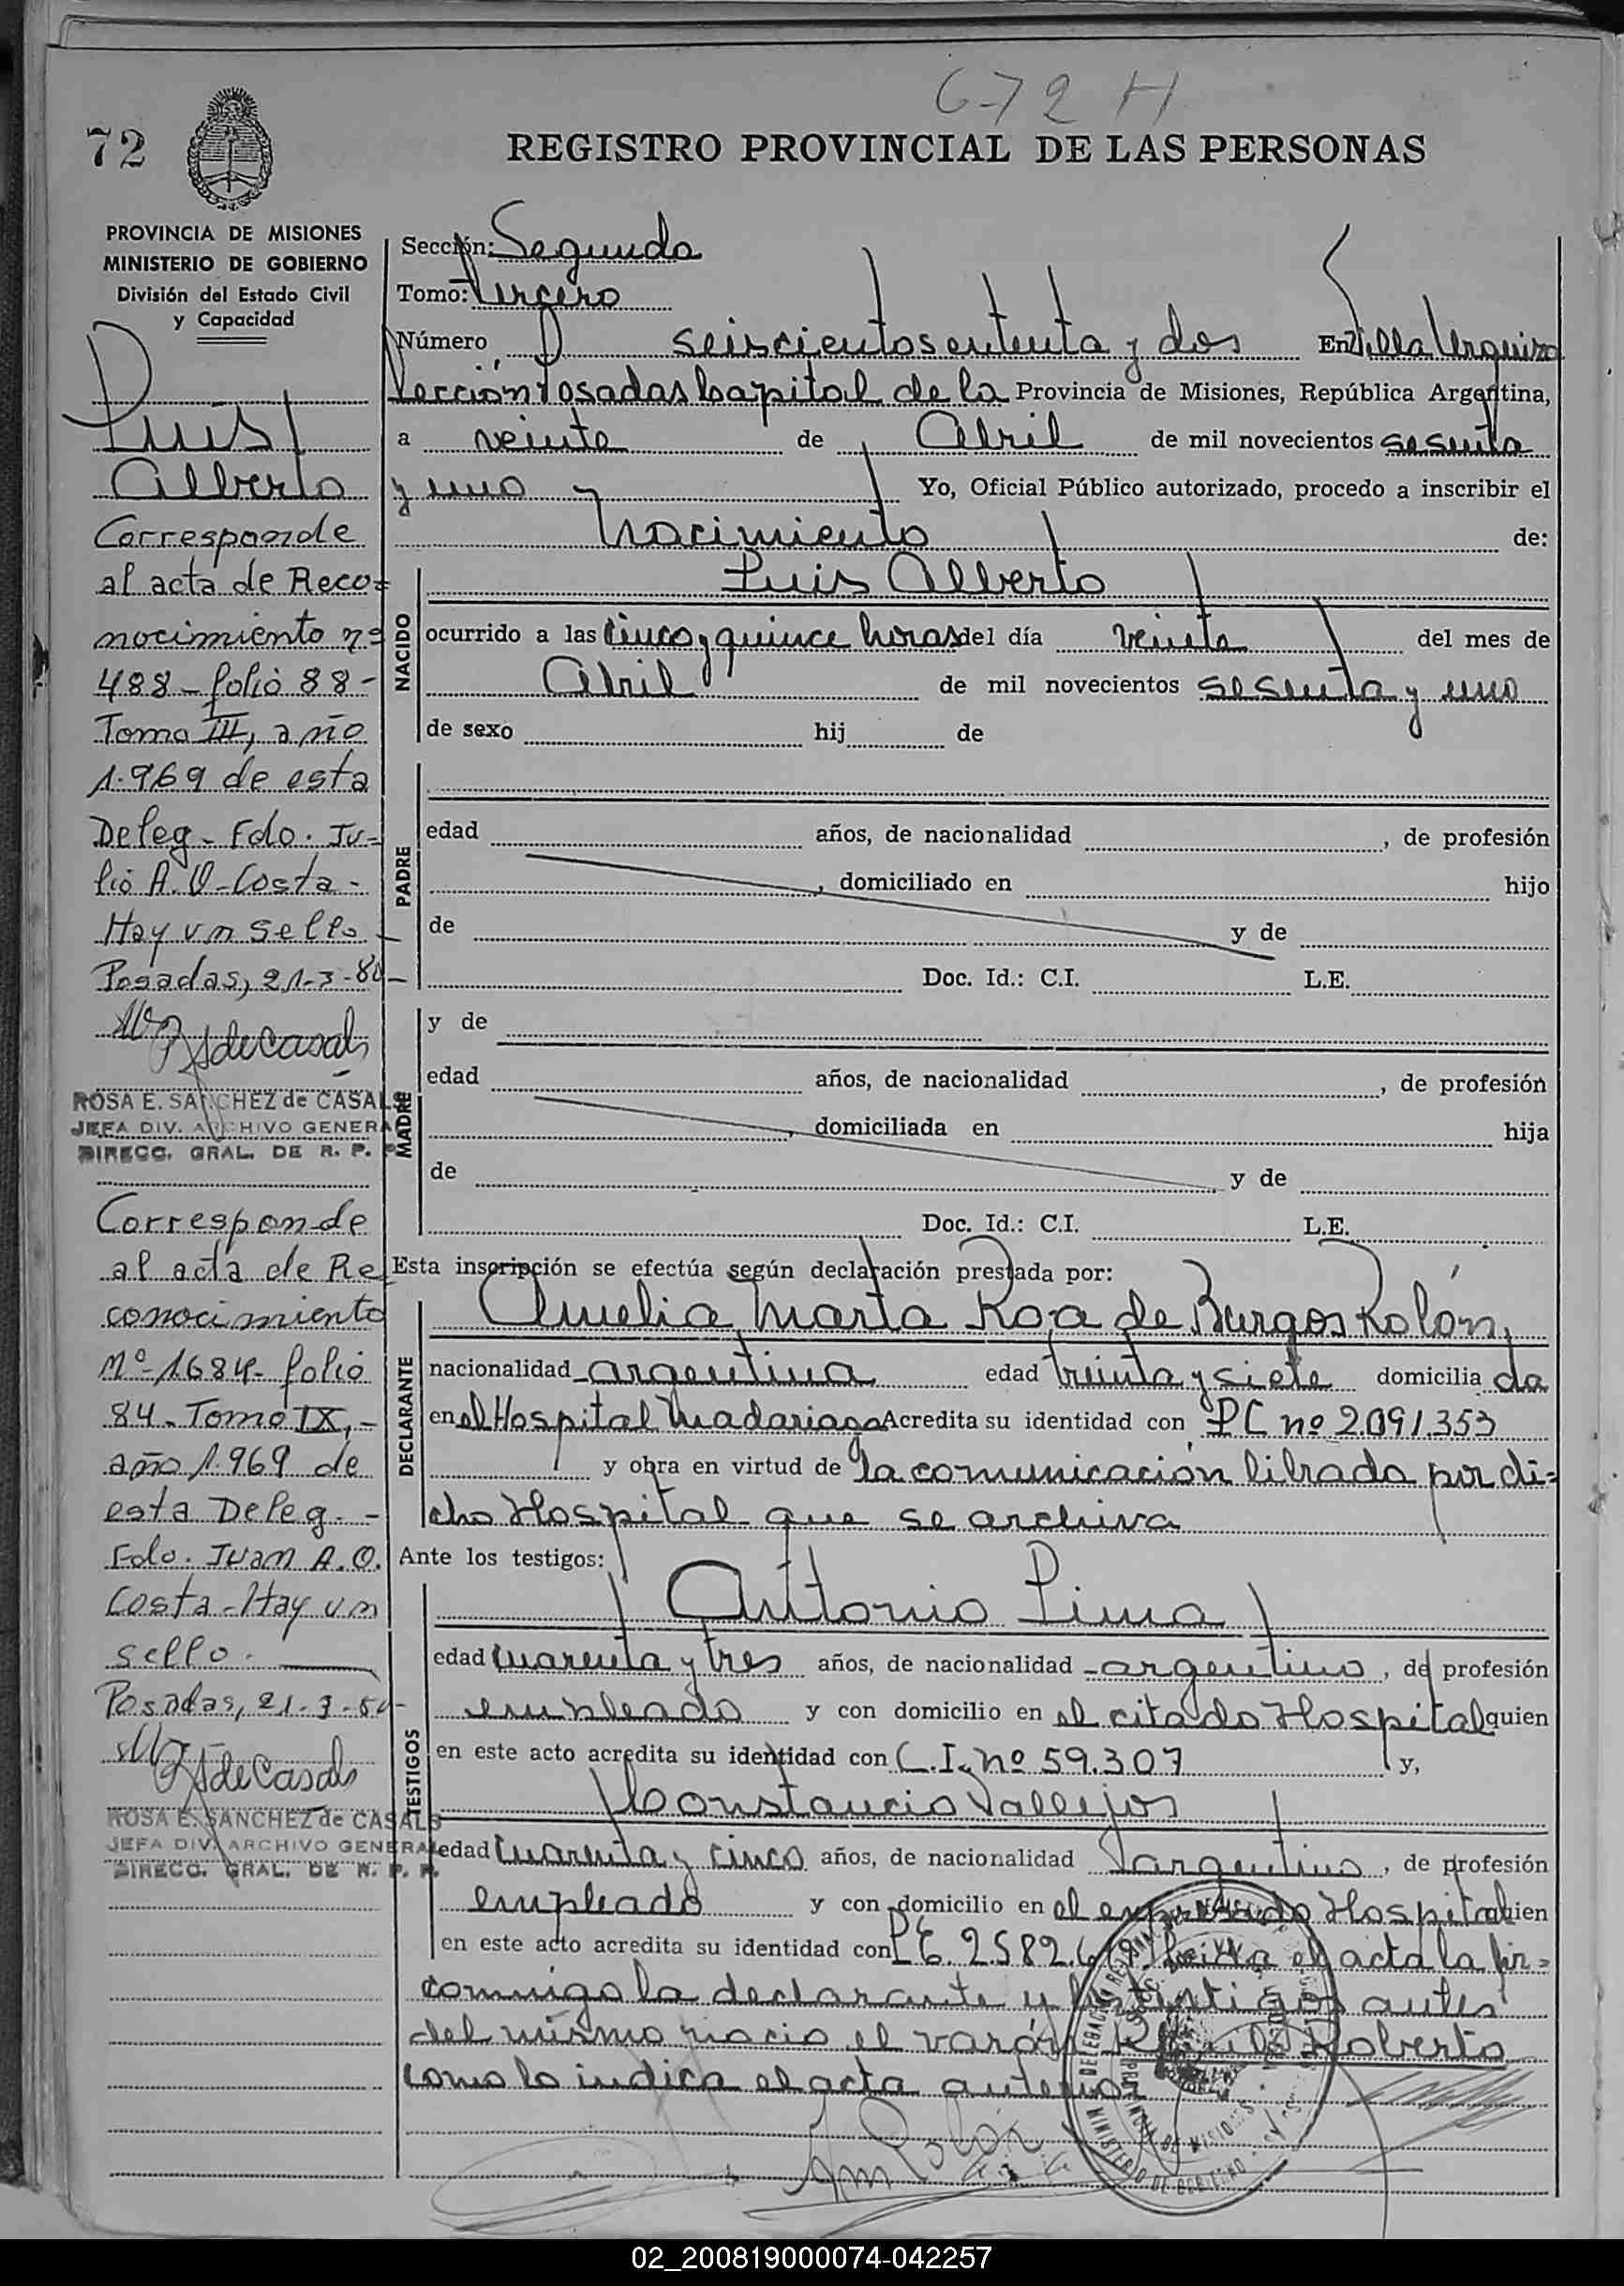 672 H
72
REGISTRO PROVINCIAL DE LAS PERSONAS
PROVINCIA DE MISIONES
MINISTERIO DE GOBIERNO
División del Estado Civil
y Capacidad
Luis
Alberto
Corresponde
al acta de Reco=
nocimiento nº
488 - folio 88 -
Tomo III, año
1.969 de esta
Deleg - Fdo. Ju-
lio A. O - Costa -
Hay un sello -
Posadas, 21-3-80-
ROSA E. SANCHEZ de CASALS
JEFA DIV. ARCHIVO GENERAL
DIRECC. GRAL. DE R. P. P.
Corresponde
al acta de Re
conocimiento
Nº - 1684 - folio
84 - Tomo IX, -
año 1.969 de
esta Deleg. -
Fdo. Juan A. O.
Costa - Hay un
sello.
Posadas, 21-3-80-
ROSA E. SANCHEZ de CASALS
JEFA DIV. ARCHIVO GENERAL
DIRECC. GRAL. DE R. P. P.
Sección: Segunda
Tomo: Tercero
Número seiscientos setenta y dos En Villa Urquiza
Sección Posadas Capital de la Provincia de Misiones, República Argentina,
a veinte de Abril de mil novecientos sesenta
y uno y Yo, Oficial Público autorizado, procedo a inscribir el
Nacimiento de:
NACIDO
Luis Alberto
ocurrido a las cinco y quince horas del día veinte del mes de
Abril de mil novecientos sesenta y uno
de sexo hij de
PADRE
edad años, de nacionalidad , de profesión
, domiciliado en hijo
de y de
Doc. Id.: C.I. L.E.
MADRE
y de
edad años, de nacionalidad , de profesión
, domiciliada en hija
de y de
Doc. Id.: C.I. L.E.
Esta inscripción se efectúa según declaración prestada por:
DECLARANTE
Amelia Marta Roa de Burgos Rolón,
nacionalidad argentina edad treinta y siete domicilia da
en el Hospital Madariaga Acredita su identidad con PC nº 2.091.353
y obra en virtud de la comunicación librada por di=
cho Hospital que se archiva
Ante los testigos:
TESTIGOS
Antonio Lima
edad cuarenta y tres años, de nacionalidad argentino, de profesión
empleado y con domicilio en el citado Hospital quien
en este acto acredita su identidad con C.I. nº 59.307 y,
Constancio Vallejos
edad cuarenta y cinco años, de nacionalidad argentino, de profesión
empleado y con domicilio en el expresado Hospital quien
en este acto acredita su identidad con 2.582.6 Leída el acta la fir=
conmigo la declarante y los testigos antes
del mismo nacio el varón Roberto
como lo indica el acta anterior
02_200819000074-042257